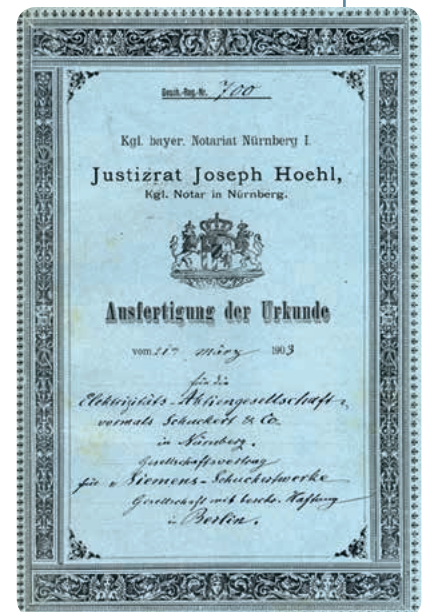 Gesch.-Reg.-Nr. 700
Kgl. bayer. Notariat Nürnberg I.
Justizrat Joseph Hoehl,
Kgl. Notar in Nürnberg.
Ausfertigung der Urkunde
vom 21ten März 1903
für die
Elektrizitäts-Aktiengesellschaft,
vormals Schuckert & Co.
in Nürnberg.
Gesellschaftsvertrag
für Siemens-Schuckertwerke
Gesellschaft mit beschr. Haftung
in Berlin.